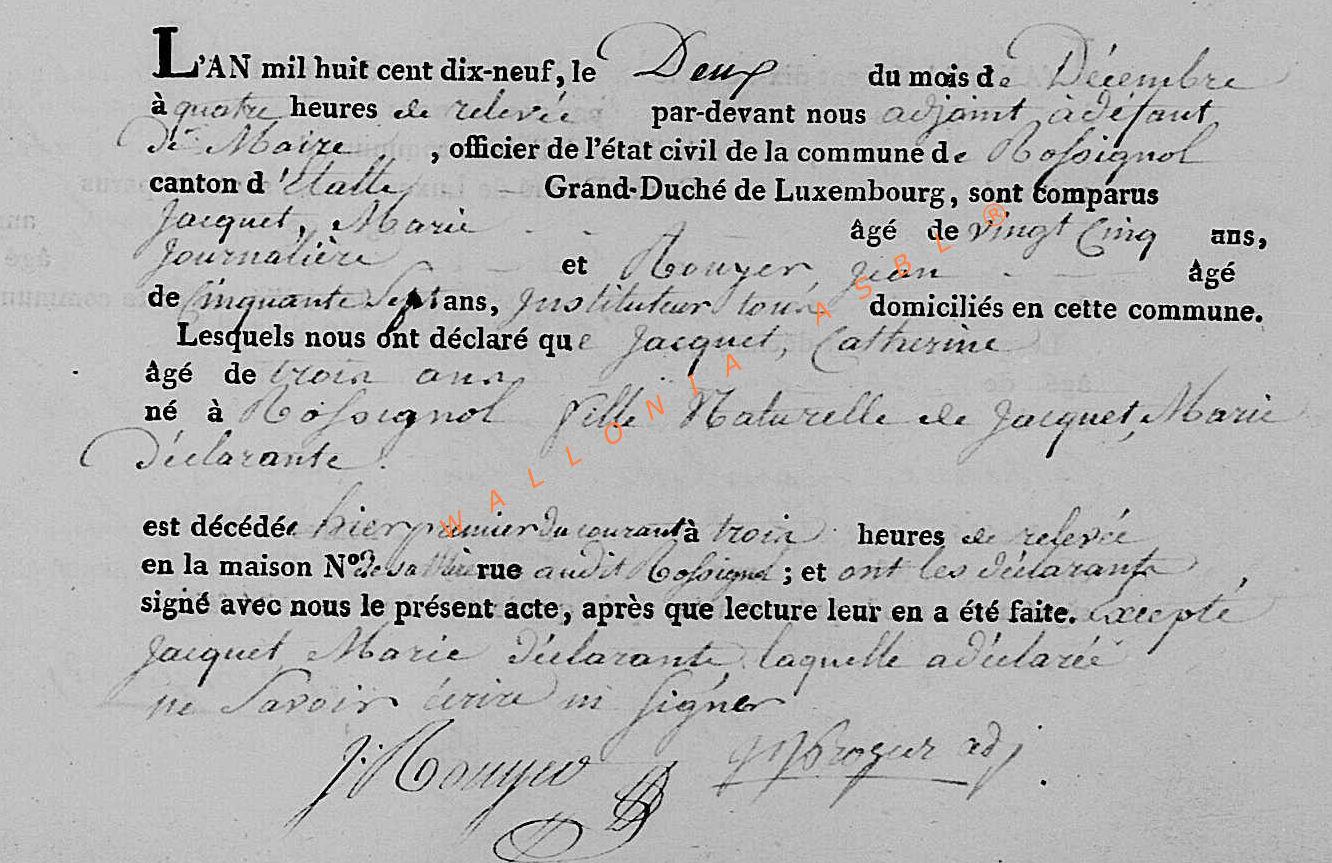 L'AN mil huit cent dix-neuf, le Deux du mois de Décembre
à quatre heures de relevée par-devant nous adjoint à défaut
de Maire, officier de l'état civil de la commune de Rossignol
canton d'Etalle, Grand-Duché de Luxembourg, sont comparus
Jacquet, Marie âgé de vingt Cinq ans,
Journalière et Rouyer, Jean âgé
de Cinquante Sept ans, Instituteur tous domiciliés en cette commune.
Lesquels nous ont déclaré que Jacquet, Catherine
âgé de trois ans
né à Rossignol fille Naturelle de Jacquet, Marie
Déclarante.
est décédée hier premier du courant à trois heures de relevée
en la maison Nº de sa Mère rue audit Rossignol ; et ont les déclarants,
signé avec nous le présent acte, après que lecture leur en a été faite. Excepté
Jacquet Marie Déclarante, laquelle a déclarée
ne Savoir écrire ni Signer
J. Rouyer adj.
WALLONIA ASBL ®